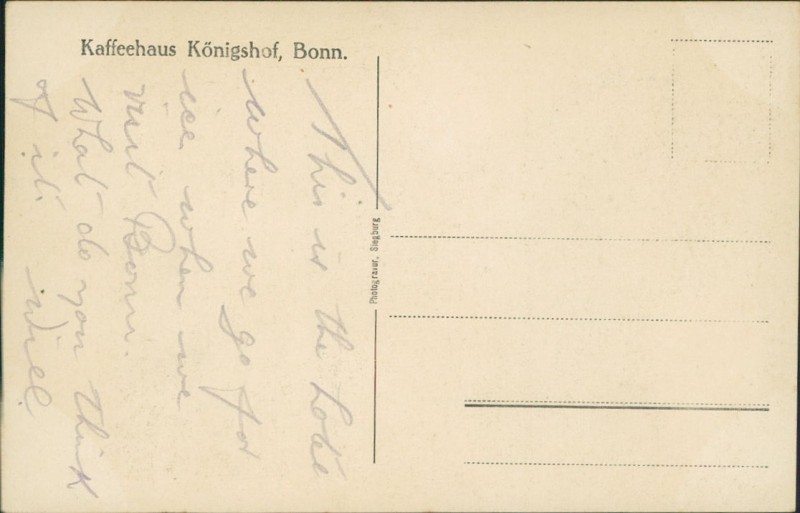 Kaffeehaus Königshof, Bonn.
This is the hotel
where we go for
ice when we
visit Bonn.
What do you think
of it.
Will.
Photogravur, Siegburg